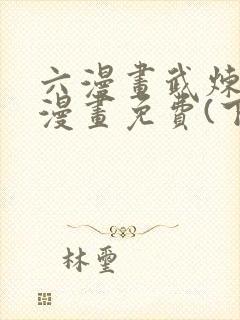 六漫畫武煉
漫畫免費(下
林璽